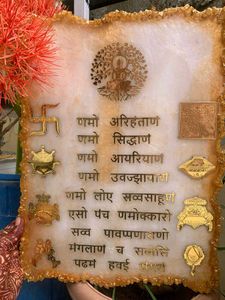 णमो अरिहंताणं
णमो सिद्धाणं
णमो आयरियाणं
णमो उवज्झायाणं
णमो लोए सव्वसाहूणं
एसो पंच णमोक्कारो
सव्व पावप्पणासणो
मंगलाणं च सव्वेसिं
पढमं हवई मंगलं